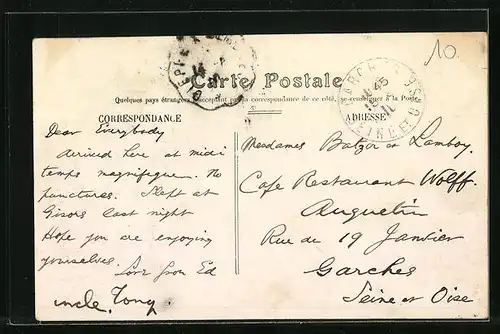 10
Carte Postale
Quelques pays étrangers n'acceptant pas la correspondance de ce côté, se renseigner à la Poste
CORRESPONDANCE
ADRESSE
Dear Everybody
Arrived here at midi
temps magnifique. No
punctures. Slept at
Gisors last night
Hope you are enjoying
yourselves. Love from Ed
uncle, Tony.
Mesdames Balzor et Lamboy.
Cafe Restaurant Wolff.
Rue du 19 Janvier
Garches
Seine et Oise